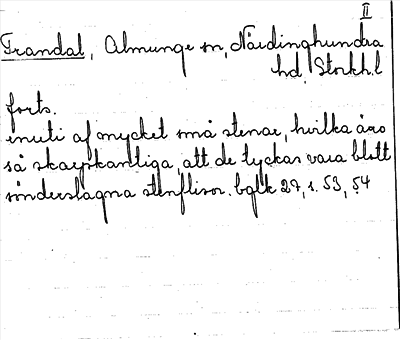 II
Trandal, Almunge sn, Närdinghundra
hd, Stockh.l
forts.
inuti af mycket små stenar, hvilka äro
så skarpkantiga, att de tyckas vara blott
sönderslagna stenflisor. bglk 27, s. 53, 54